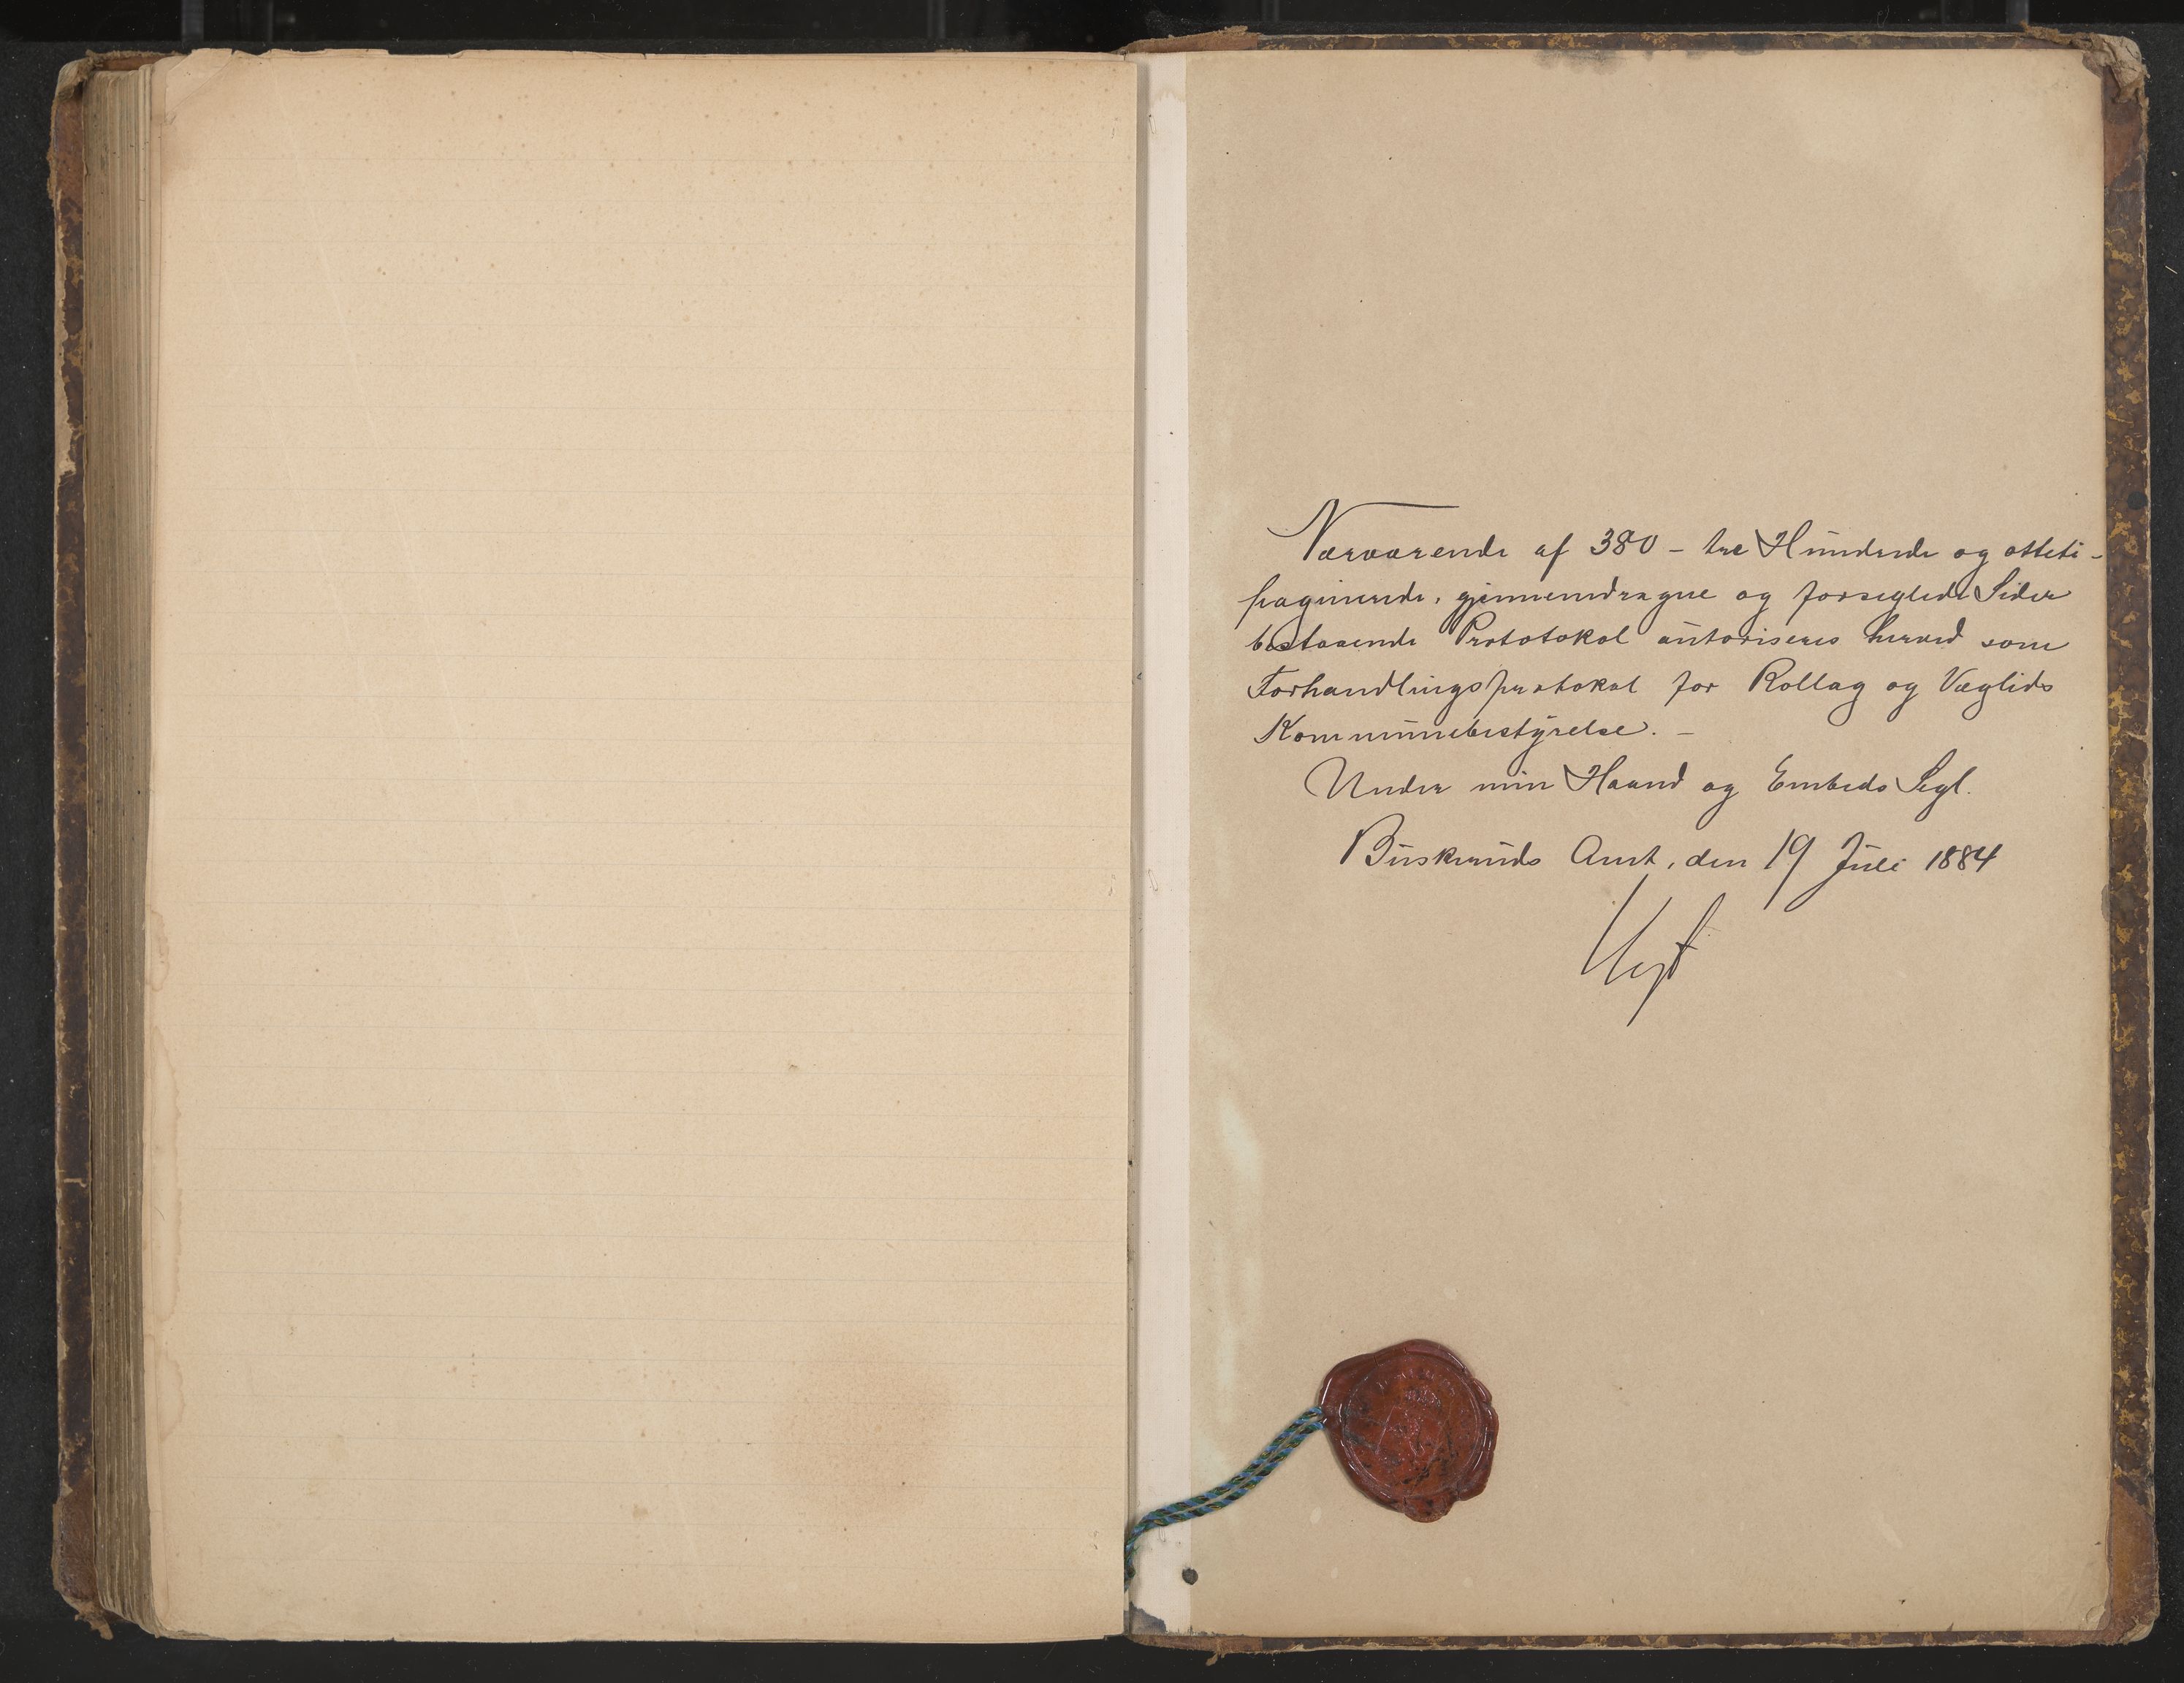 Nærværende af 380 - tre Hundrede og otteti -
paginerede, gjennemdragne og forseglede Sider
bestaaende Prototokol autoriseres herved som
Forhandlingsprotokol for Rollag og Væglids
Kommunebestyrelse. -
Under min Haand og Embeds Segl.
Buskeruds Amt, den 19 Juli 1884